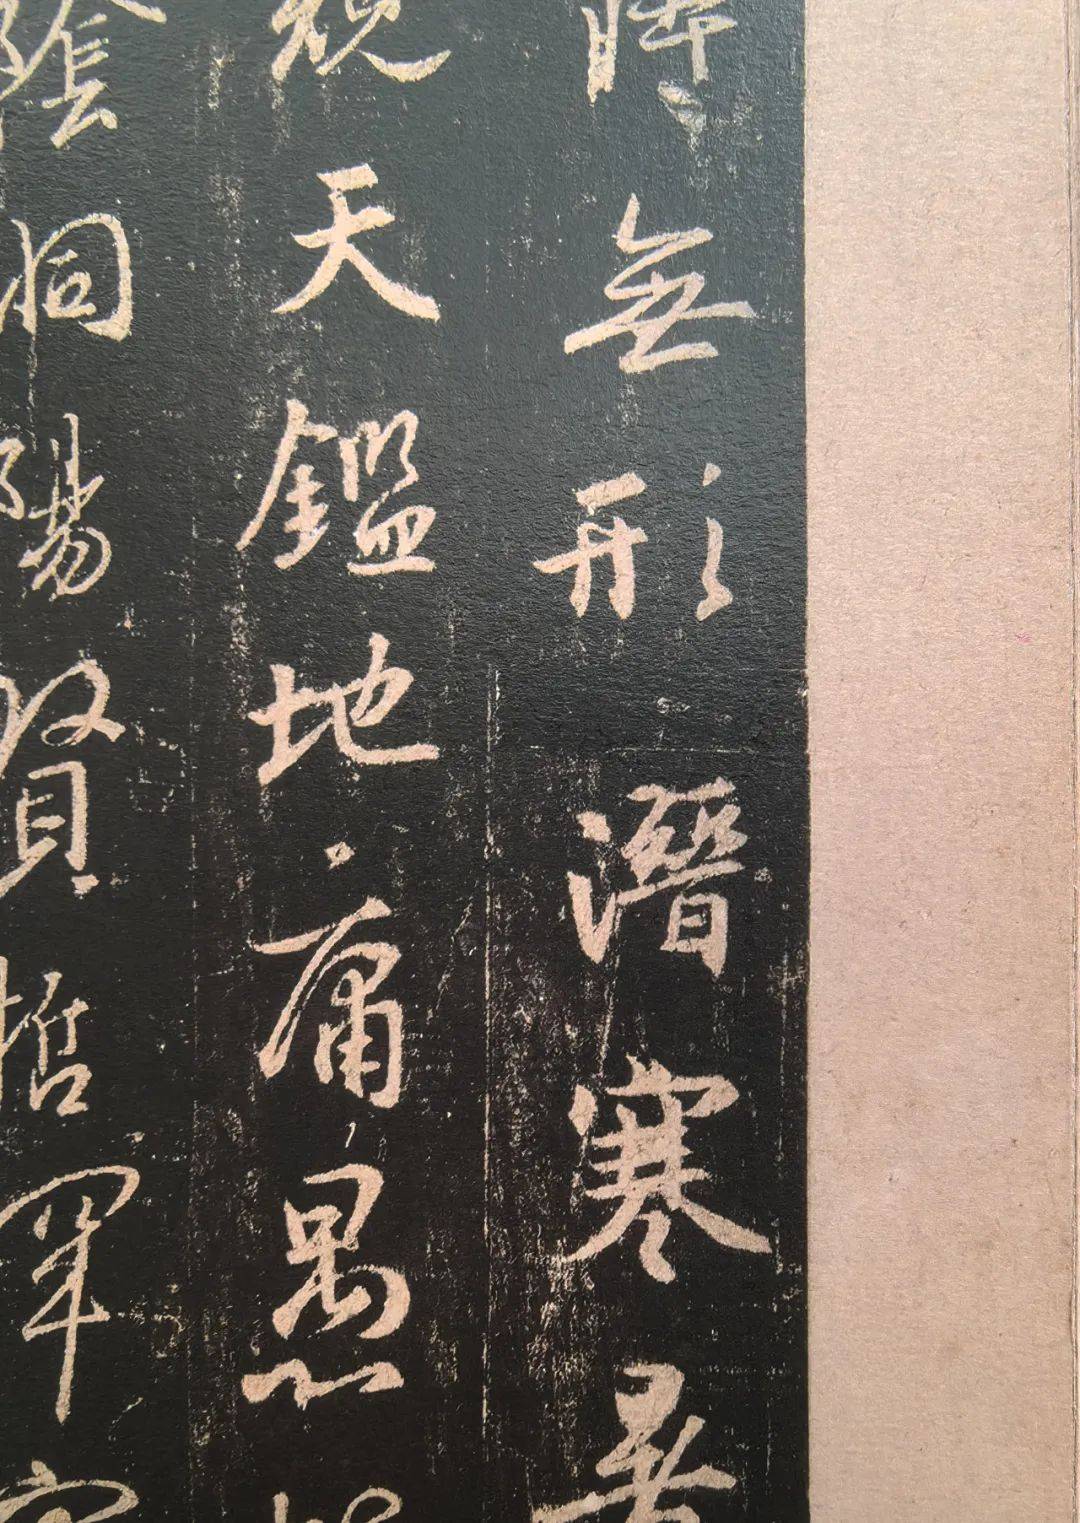 時無形潛寒暑
窺天鑑地庸愚
陰洞陽賢哲罕